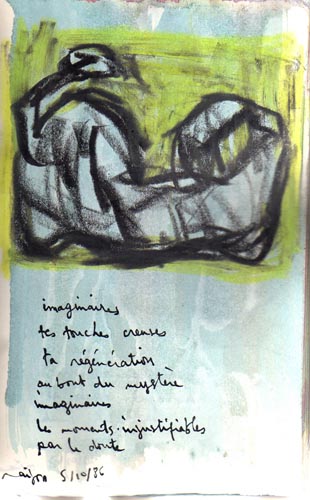 imaginaires
tes touches creuses
ta régénération
au bout du mystère
imaginaires
les moments injustifiables
par le doute
5/10/86